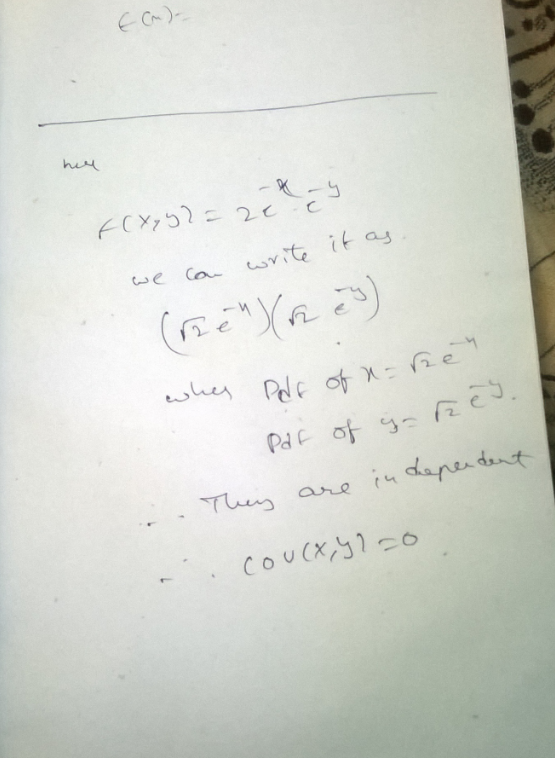 f(x)=
here
f(x,y) = 2e^{-x} e^{-y}
we can write it as
(√2 e^{-x})(√2 e^{-y})
where Pdf of x = √2 e^{-x}
Pdf of y = √2 e^{-y}.
∴ They are independent
∴ COV(x,y) = 0